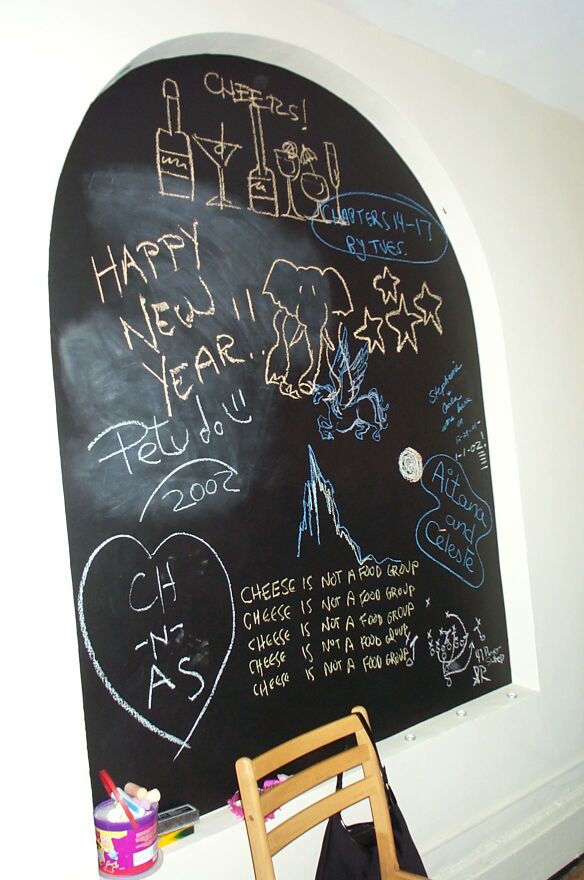 CHEERS!
CHAPTERS 14-17
BY TUES.
HAPPY
NEW
YEAR!!..
Petudo
2002
Stephanie
1-1-02!
Aitana
and
Celeste
CH
-N-
AS
CHEESE IS NOT A FOOD GROUP
CHEESE IS NOT A FOOD GROUP
CHEESE IS NOT A FOOD GROUP
CHEESE IS NOT A FOOD GROUP
CHEESE IS NOT A FOOD GROUP